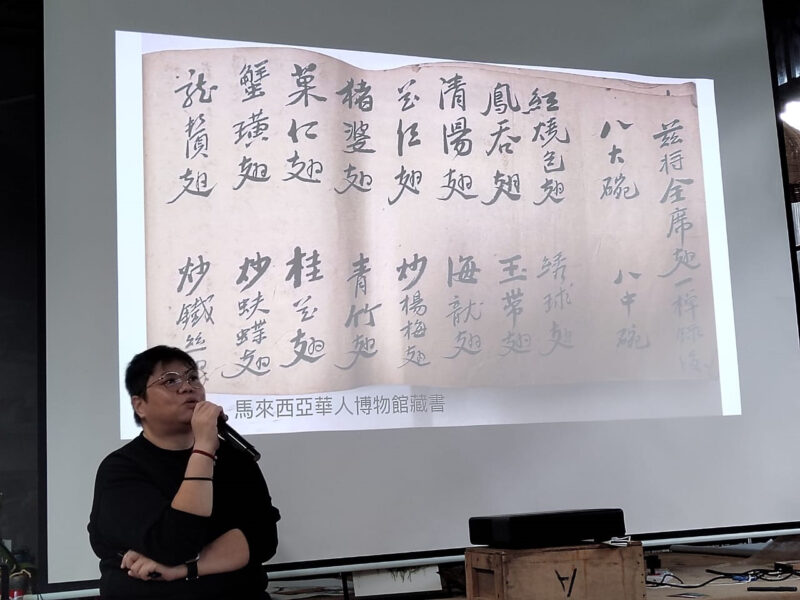 茲將全席翅一棹錄後
八大碗 八中碗
紅燒包翅 綉球翅
鳳吞翅 玉帶翅
清湯翅 海龍翅
翅 炒楊梅翅
猪婆翅 青竹翅
菓仁翅 桂花翅
蟹璜翅 炒蚨蝶翅
龍賛翅 炒鐵絲
馬來西亞華人博物館藏書
A